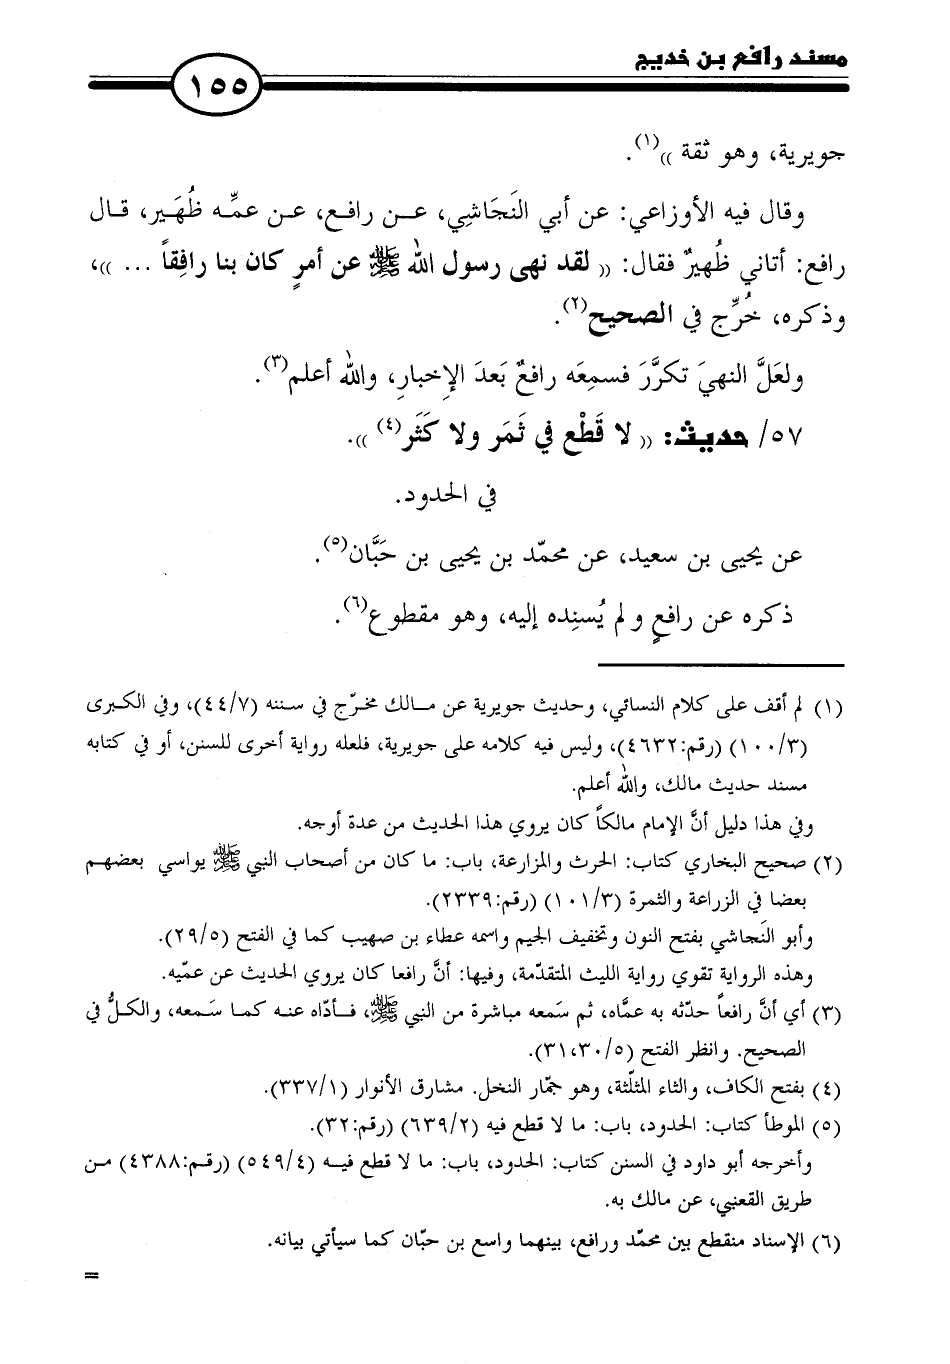 مسند رافع بن خديج
١٥٥
جويرية، وهو ثقة »(١).
وقال فيه الأوزاعي: عن أبي النَجَاشِي، عـن رافع، عـن عمِّـه ظُهَير، قـال
رافع: أتاني ظُهيرٌ فقال: « لقد نهى رسول الله ﷺ عن أمرٍ كان بنا رافِقاً ... »،
وذكره، خُرِّج في الصحيح(٢).
ولعَلَّ النهيَ تكرَّرَ فسمِعَه رافعٌ بَعدَ الإخبارِ، والله أعلم(٣).
٥٧/ حديث: « لا قَطْع في ثَمَر ولا كَثَر(٤) ».
في الحدود.
عن يحيى بن سعيد، عن محمّد بن يحيى بن حَبَّان(٥).
ذكره عن رافعٍ ولم يُسنِده إليه، وهو مقطوع(٦).
(١) لم أقف على كلام النسائي، وحديث جويرية عن مـالك مخـرّج في سـننه (٤٤/٧)، وفي الكبرى
(١٠٠/٣) (رقم:٤٦٣٢)، وليس فيه كلامه على جويرية، فلعله رواية أخرى للسنن، أو في كتابه
مسند حديث مالك، والله أعلم.
وفي هذا دليل أنَّ الإمام مالكاً كان يروي هذا الحديث من عدة أوجه.
(٢) صحيح البخاري كتاب: الحرث والمزارعة، باب: ما كان من أصحاب النبي ﷺ يواسي بعضهـم
بعضا في الزراعة والثمرة (١٠١/٣) (رقم:٢٣٣٩).
وأبو النَجاشي بفتح النون وتخفيف الجيم واسمه عطاء بن صهيب كما في الفتح (٢٩/٥).
وهذه الرواية تقوي رواية الليث المتقدّمة، وفيها: أنَّ رافعا كان يروي الحديث عن عمّيه.
(٣) أي أنَّ رافعاً حدّثه به عمّاه، ثم سَمعه مباشرة من النبي ﷺ، فـأدّاه عنـه كمـا سَـمعه، والكلُّ في
الصحيح. وانظر الفتح (٣١،٣٠/٥).
(٤) بفتح الكاف، والثاء المثلّثة، وهو جمّار النخل. مشارق الأنوار (٣٣٧/١).
(٥) الموطأ كتاب: الحدود، باب: ما لا قطع فيه (٦٣٩/٢) (رقم:٣٢).
وأخرجه أبو داود في السنن كتاب: الحدود، باب: ما لا قطع فيـه (٥٤٩/٤) (رقـم:٤٣٨٨) مـن
طريق القعنبي، عن مالك به.
(٦) الإسناد منقطع بين محمّد ورافع، بينهما واسع بن حبّان كما سيأتي بيانه.
=